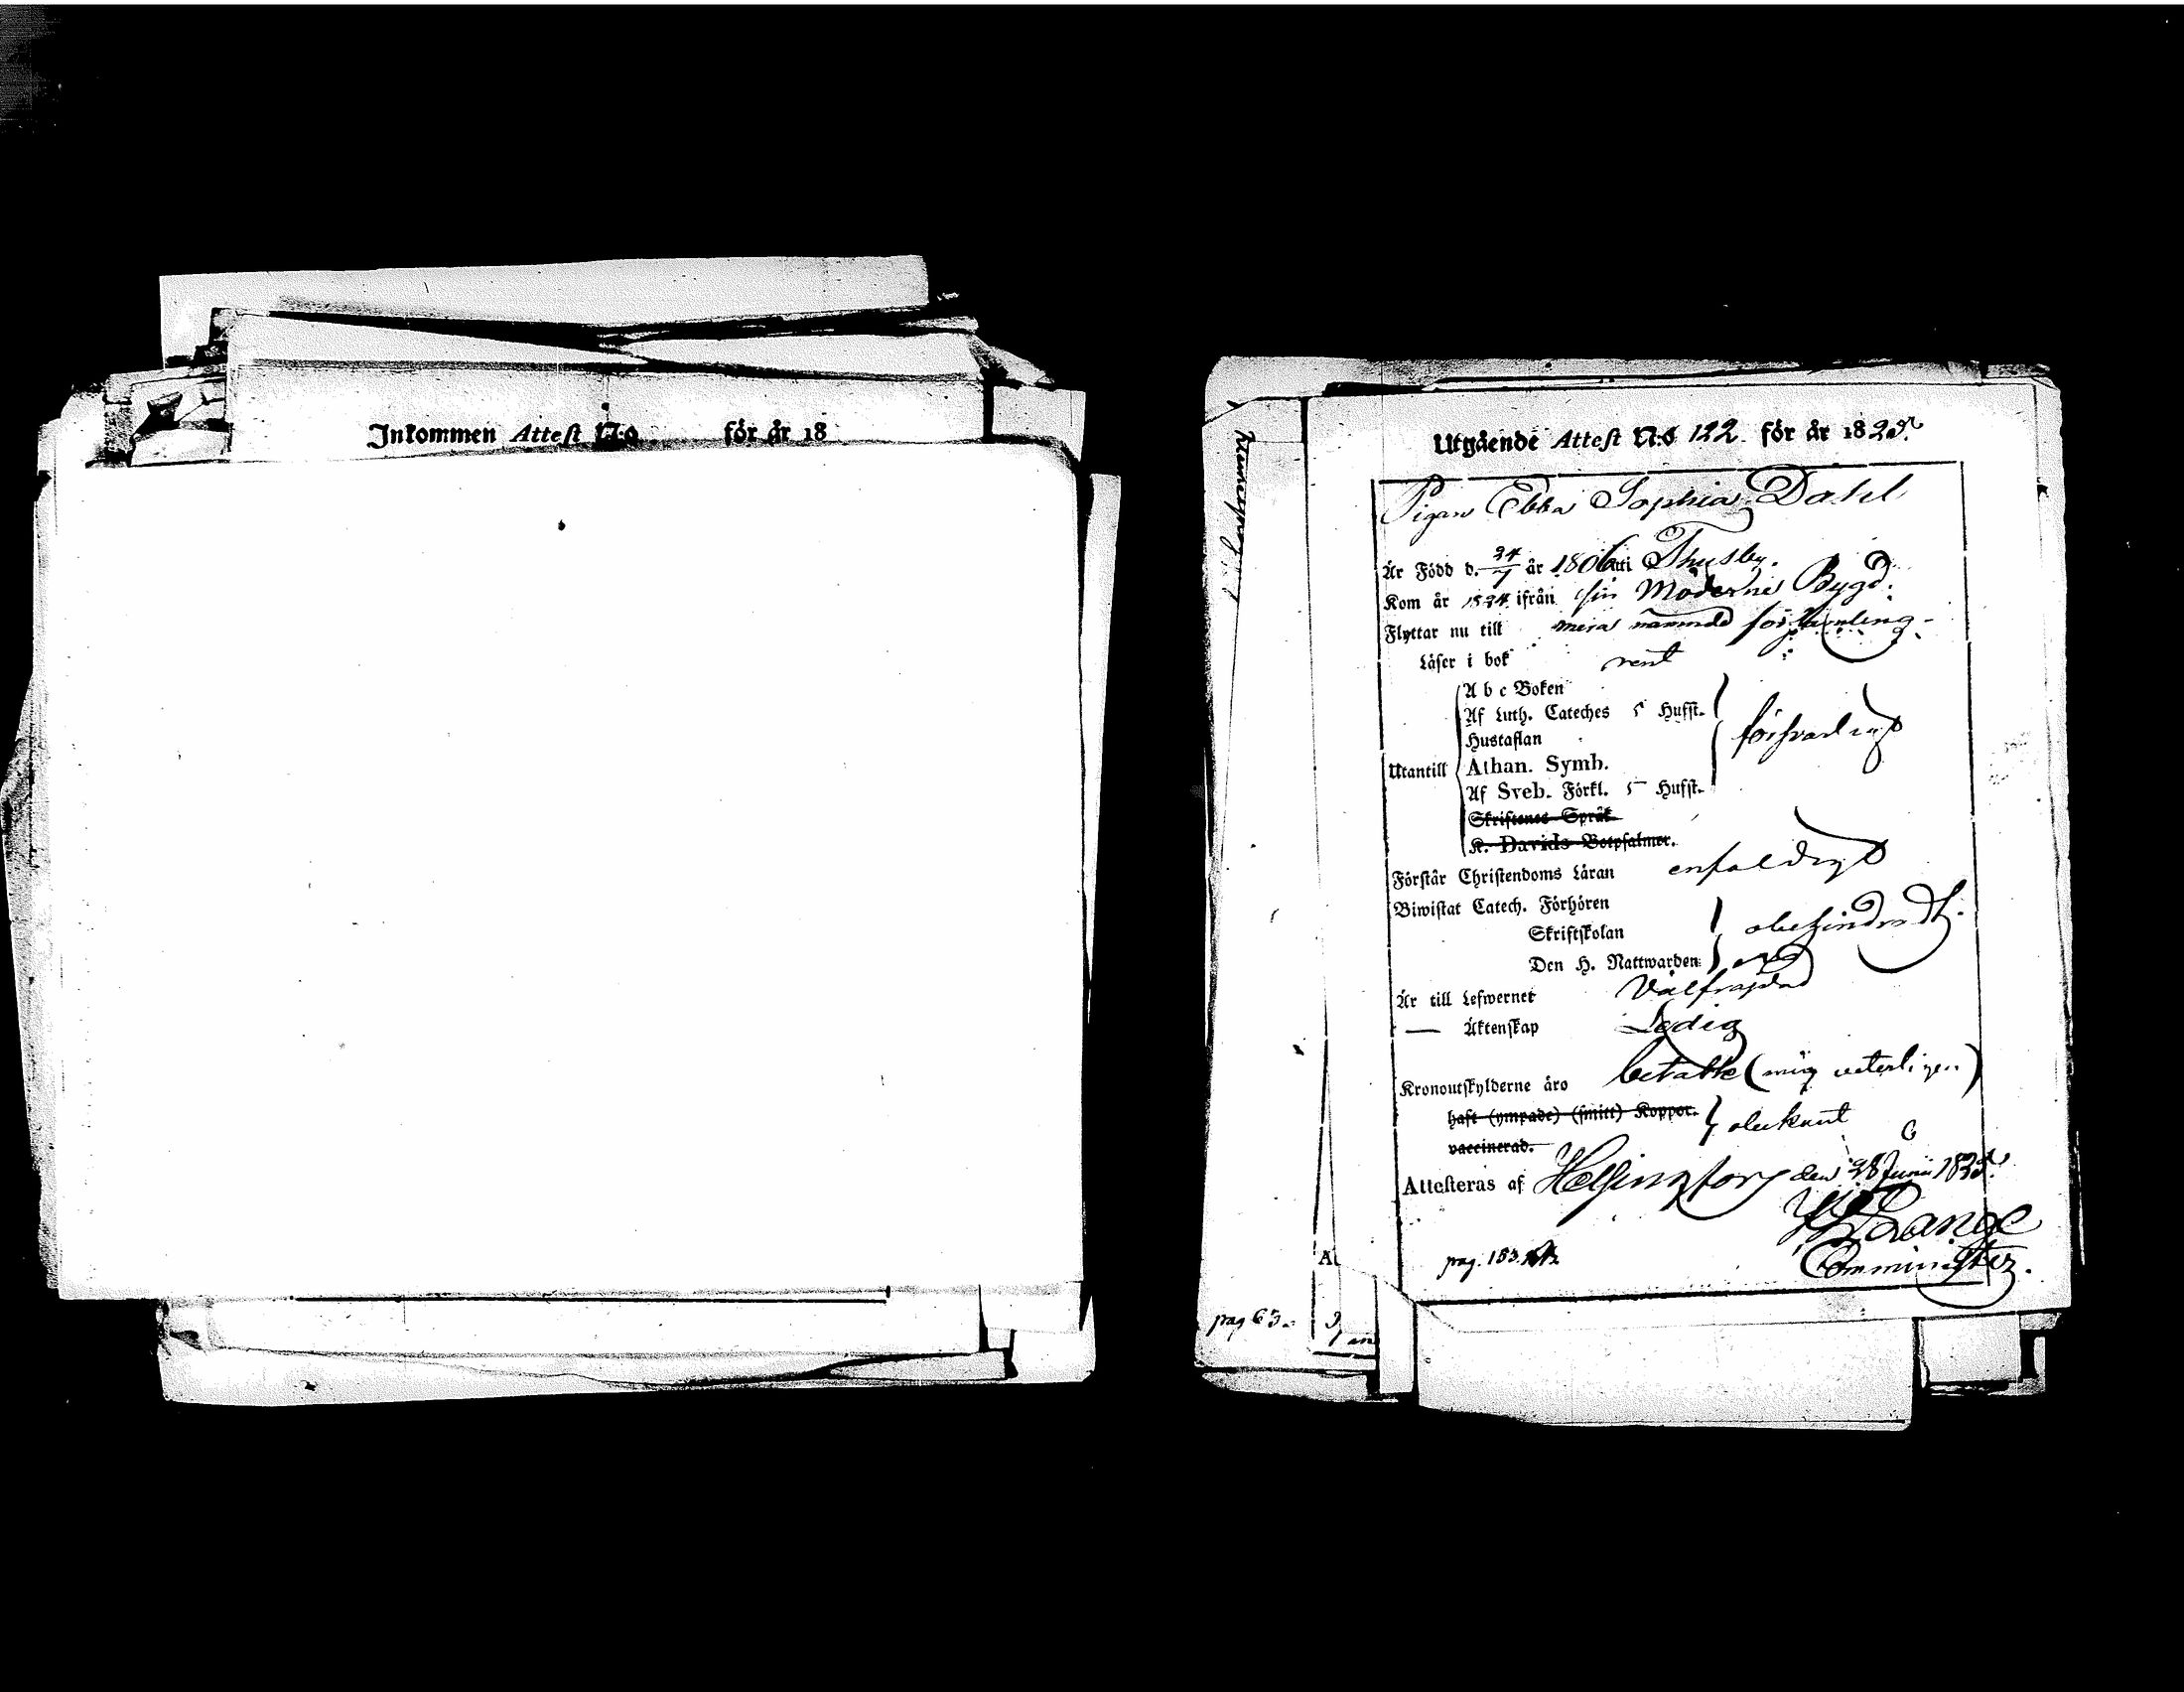 Inkommen Attest N:o för år 18
Utgående Attest N:o 122 för år 1825.
Pigan Ebba Sophia Dahl
Är Född d. 24/7 år 1806 uti Thusby.
Kom år 1824 ifrån sin Moderne Bygd.
Flyttar nu till mera nämnde församling.
Läser i bok rent
A b c Boken
Af Luth. Cateches 5 Hufst.
Hustaflan
Utantill Athan. Symb. försvarligt
Af Sveb. Förkl. 5 Hufst.
Skriftenes Språk
K. Davids Botpsalmer.
Förstår Christendoms Läran enfaldigt
Biwistat Catech. Förhören
Skriftskolan obehindradt.
Den H. Nattwarden
Är till Lefwernet Välfrajdad
— Äktenskap Ledig
Kronoutskylderne äro betalte (mig veterligen)
haft (ympade) (smitt) Koppor.
vaccinerad. obekant
Attesteras af Helsingfors den 28 Junii 1825.
Lange
Comminister.
pag. 153.
pag 63.